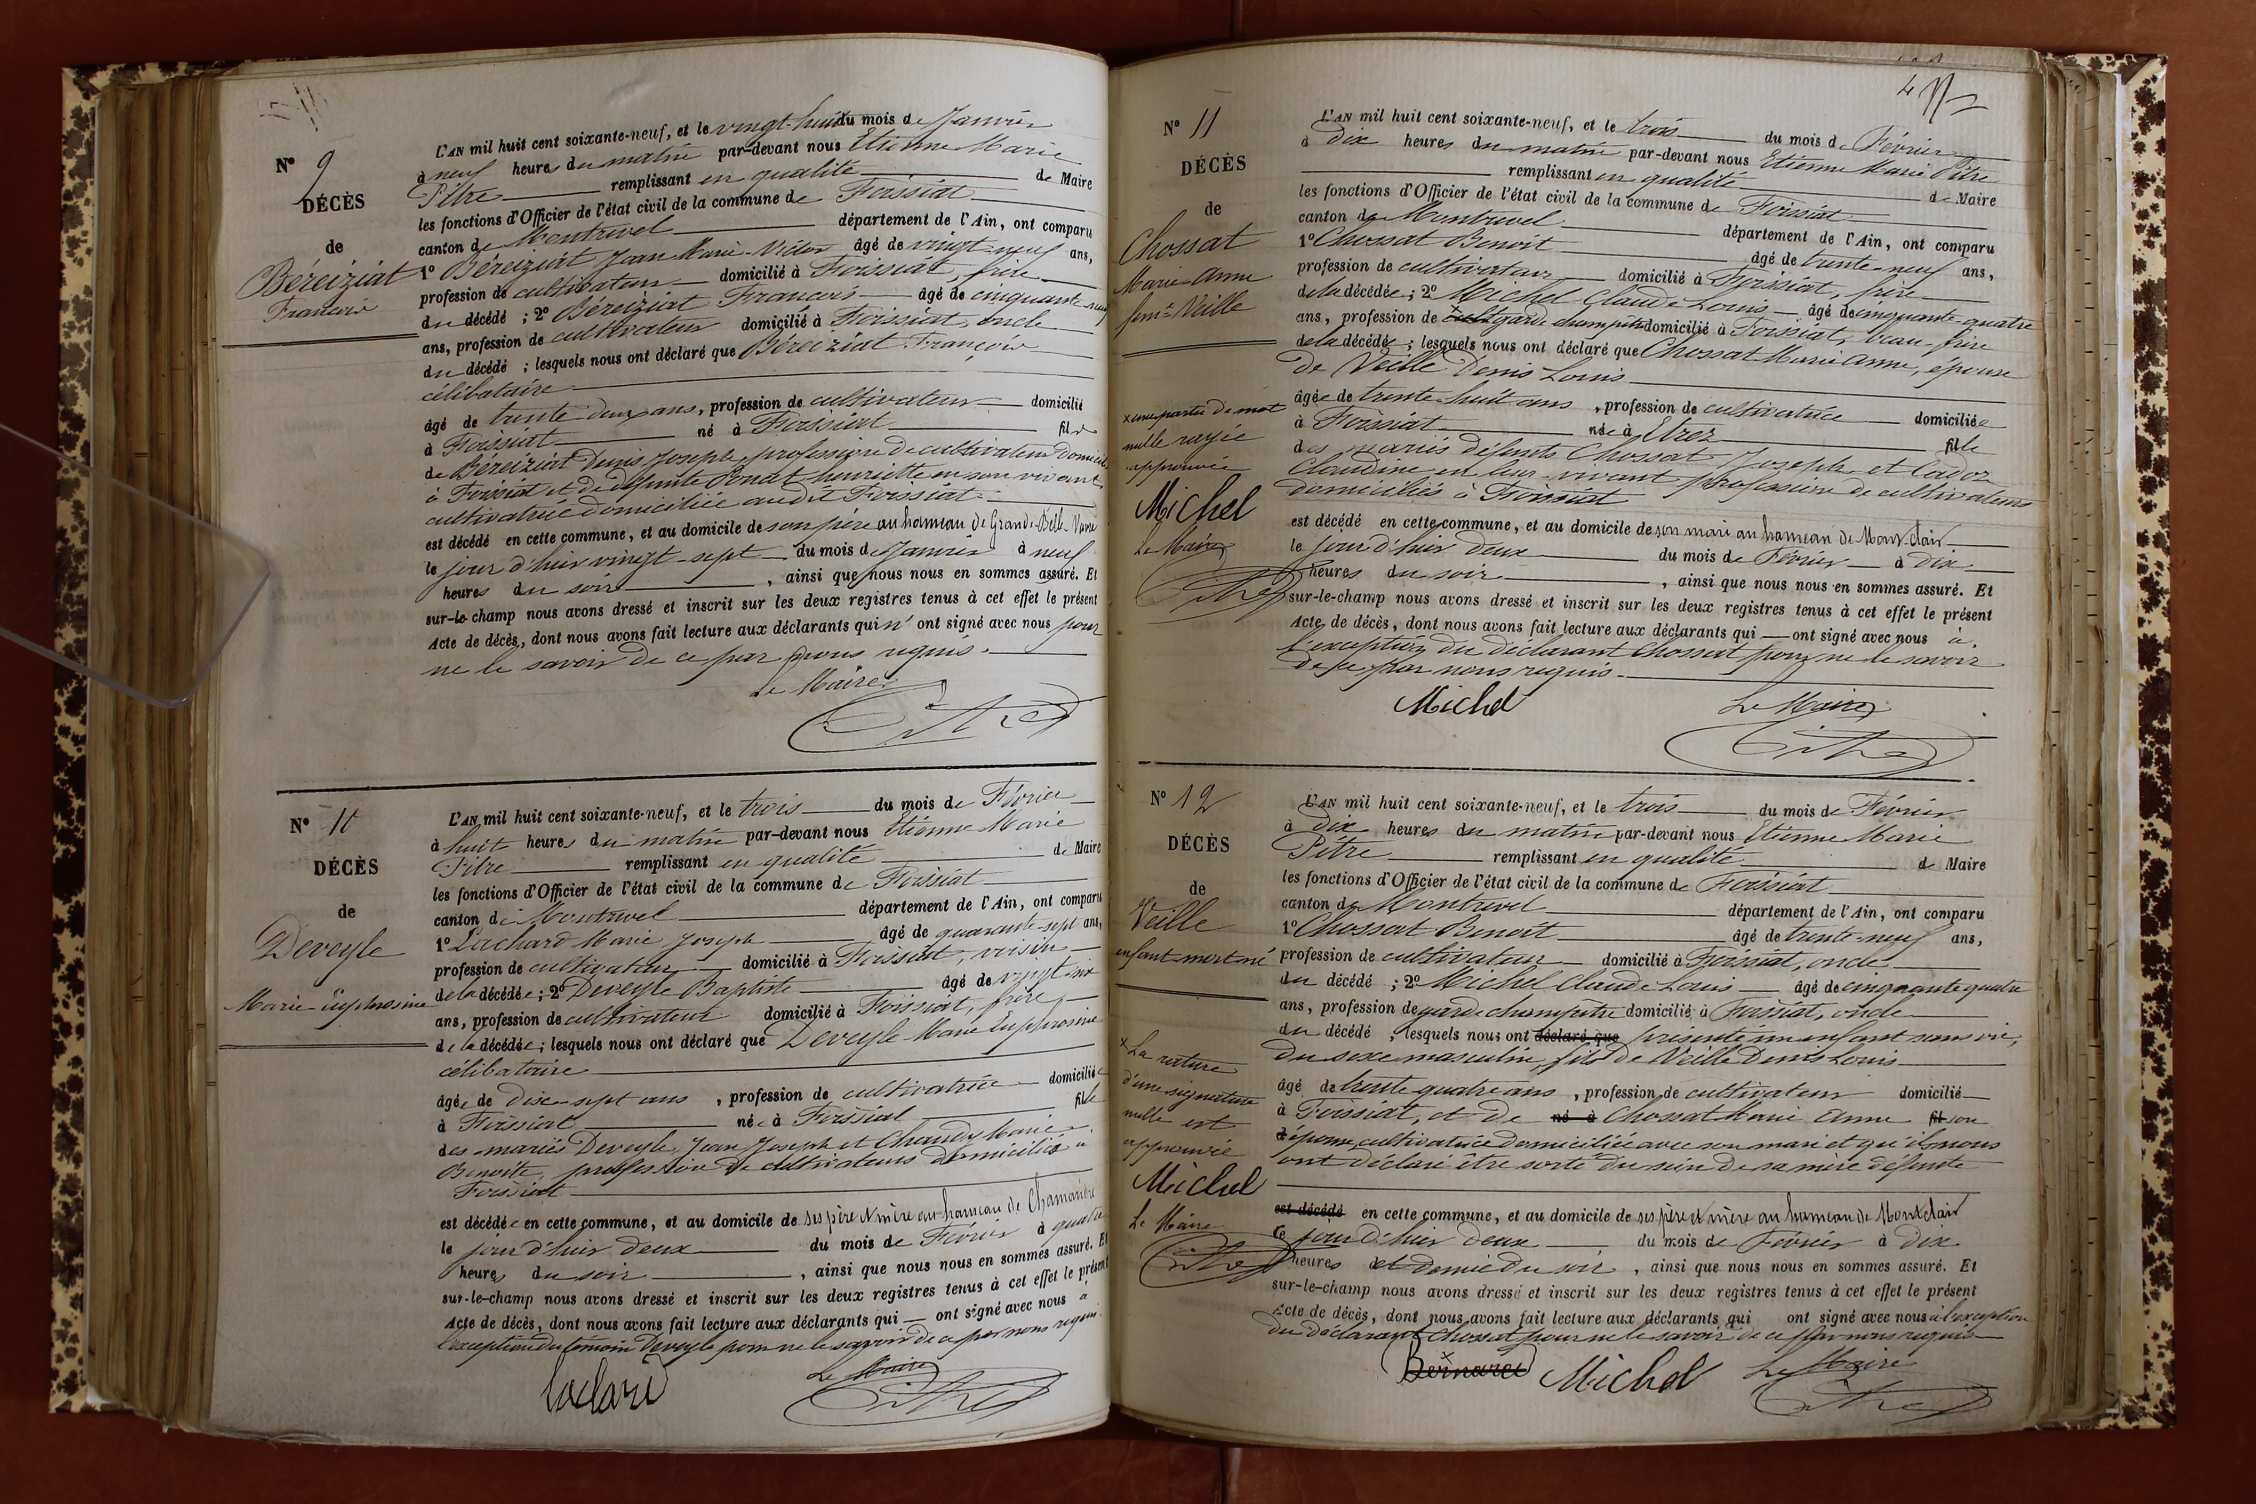 N° 9
DÉCÈS
de
Béreiziat
François
L'AN mil huit cent soixante-neuf, et le vingt-huit du mois de Janvier
à neuf heures du matin par-devant nous Etienne Marie
Pitre remplissant en qualité de Maire
les fonctions d'Officier de l'état civil de la commune de Foissiat
canton de Montrevel département de l'Ain, ont comparu
1° Béreiziat Jean Marie Victor âgé de vingt-neuf ans,
profession de cultivateur domicilié à Foissiat, frère
du décédé ; 2° Béreiziat François âgé de cinquante neuf
ans, profession de cultivateur domicilié à Foissiat, oncle
du décédé ; lesquels nous ont déclaré que Béreiziat François
célibataire
âgé de trente deux ans, profession de cultivateur domicilié
à Foissiat né à Foissiat fils
de Béreiziat Denis Joseph, profession de cultivateur domicilié
à Foissiat et de défunte Henriette en son vivant
cultivatrice domiciliée audit Foissiat
est décédé en cette commune, et au domicile de son père au hameau de Grande Belle
le jour d'hier vingt-sept du mois de Janvier à neuf
heures du soir , ainsi que nous nous en sommes assuré. Et
sur-le-champ nous avons dressé et inscrit sur les deux registres tenus à cet effet le présent
Acte de décès, dont nous avons fait lecture aux déclarants qui n'ont signé avec nous pour
ne le savoir de ce par nous requis.
Le Maire
Pitre
N° 10
DÉCÈS
de
Deveyle
Marie Euphrosine
L'AN mil huit cent soixante-neuf, et le trois du mois de Février
à huit heures du matin par-devant nous Etienne Marie
Pitre remplissant en qualité de Maire
les fonctions d'Officier de l'état civil de la commune de Foissiat
canton de Montrevel département de l'Ain, ont comparu
1° Lachard Marie Joseph âgé de quarante-sept ans,
profession de cultivateur domicilié à Foissiat, voisin
de la décédée ; 2° Deveyle Baptiste âgé de vingt
ans, profession de cultivateur domicilié à Foissiat, frère
de la décédée ; lesquels nous ont déclaré que Deveyle Marie Euphrosine
célibataire
âgée de dix-sept ans , profession de cultivatrice domiciliée
à Foissiat née à Foissiat fille
des mariés Deveyle Jean Joseph et Chandy Marie
Benoîte profession de cultivateurs domiciliés à
Foissiat
est décédée en cette commune, et au domicile de ses père & mère au hameau de Chamandre
le jour d'hier deux du mois de Février à quatre
heures du soir , ainsi que nous nous en sommes assuré. Et
sur-le-champ nous avons dressé et inscrit sur les deux registres tenus à cet effet le présent
Acte de décès, dont nous avons fait lecture aux déclarants qui ont signé avec nous à
l'exception du témoin Deveyle pour ne le savoir de ce par nous requis
Lachard
Le Maire
Pitre
N° 11
DÉCÈS
de
Chossat
Marie Anne
fem. Veille
x une partie de mot
nulle rayée
approuvée
Michel
Le Maire
Pitre
L'AN mil huit cent soixante-neuf, et le trois du mois de Février
à dix heures du matin par-devant nous Etienne Marie Pitre
remplissant en qualité de Maire
les fonctions d'Officier de l'état civil de la commune de Foissiat
canton de Montrevel département de l'Ain, ont comparu
1° Chossat Benoit âgé de trente-neuf ans,
profession de cultivateur domicilié à Foissiat, frère
de la décédée ; 2° Michel Claude Louis âgé de cinquante-quatre
ans, profession de garde champêtre domicilié à Foissiat, beau-frère
de la décédée ; lesquels nous ont déclaré que Chossat Marie Anne, épouse
de Veille Denis Louis
âgée de trente huit ans , profession de cultivatrice domiciliée
à Foissiat née à Etrez fille
des mariés défunts Chossat Joseph et Cador
Claudine en leur vivant profession de cultivateurs
domiciliés à Foissiat
est décédé en cette commune, et au domicile de son mari au hameau de Montclair
le jour d'hier deux du mois de Février à dix
heures du soir , ainsi que nous nous en sommes assuré. Et
sur-le-champ nous avons dressé et inscrit sur les deux registres tenus à cet effet le présent
Acte de décès, dont nous avons fait lecture aux déclarants qui ont signé avec nous à
l'exception du déclarant Chossat pour ne le savoir
de ce par nous requis.
Michel
Le Maire
Pitre
N° 12
DÉCÈS
de
Veille
enfant mort né
x La rature
d'une signature
nulle est
approuvée
Michel
Le Maire
Pitre
L'AN mil huit cent soixante-neuf, et le trois du mois de Février
à dix heures du matin par-devant nous Etienne Marie
Pitre remplissant en qualité de Maire
les fonctions d'Officier de l'état civil de la commune de Foissiat
canton de Montrevel département de l'Ain, ont comparu
1° Chossat Benoit âgé de trente-neuf ans,
profession de cultivateur domicilié à Foissiat, oncle
du décédé ; 2° Michel Claude Louis âgé de cinquante quatre
ans, profession de garde champêtre domicilié à Foissiat, oncle
du décédé ; lesquels nous ont déclaré que présenté un enfant sans vie,
du sexe masculin, fils de Veille Denis Louis
âgé de trente quatre ans , profession de cultivateur domicilié
à Foissiat, et de né à Chossat Marie Anne fil son
épouse, cultivatrice domiciliée avec son mari et qu'ils nous
ont déclaré être sorti du sein de sa mère défunte
est décédé en cette commune, et au domicile de ses père & mère au hameau de Montclair
le jour d'hier deux du mois de Février à dix
heures et demie du soir , ainsi que nous nous en sommes assuré. Et
sur-le-champ nous avons dressé et inscrit sur les deux registres tenus à cet effet le présent
Acte de décès, dont nous avons fait lecture aux déclarants qui ont signé avec nous à l'exception
du déclarant Chossat pour ne le savoir de ce par nous requis
x
Bernard Michel
Le Maire
Pitre